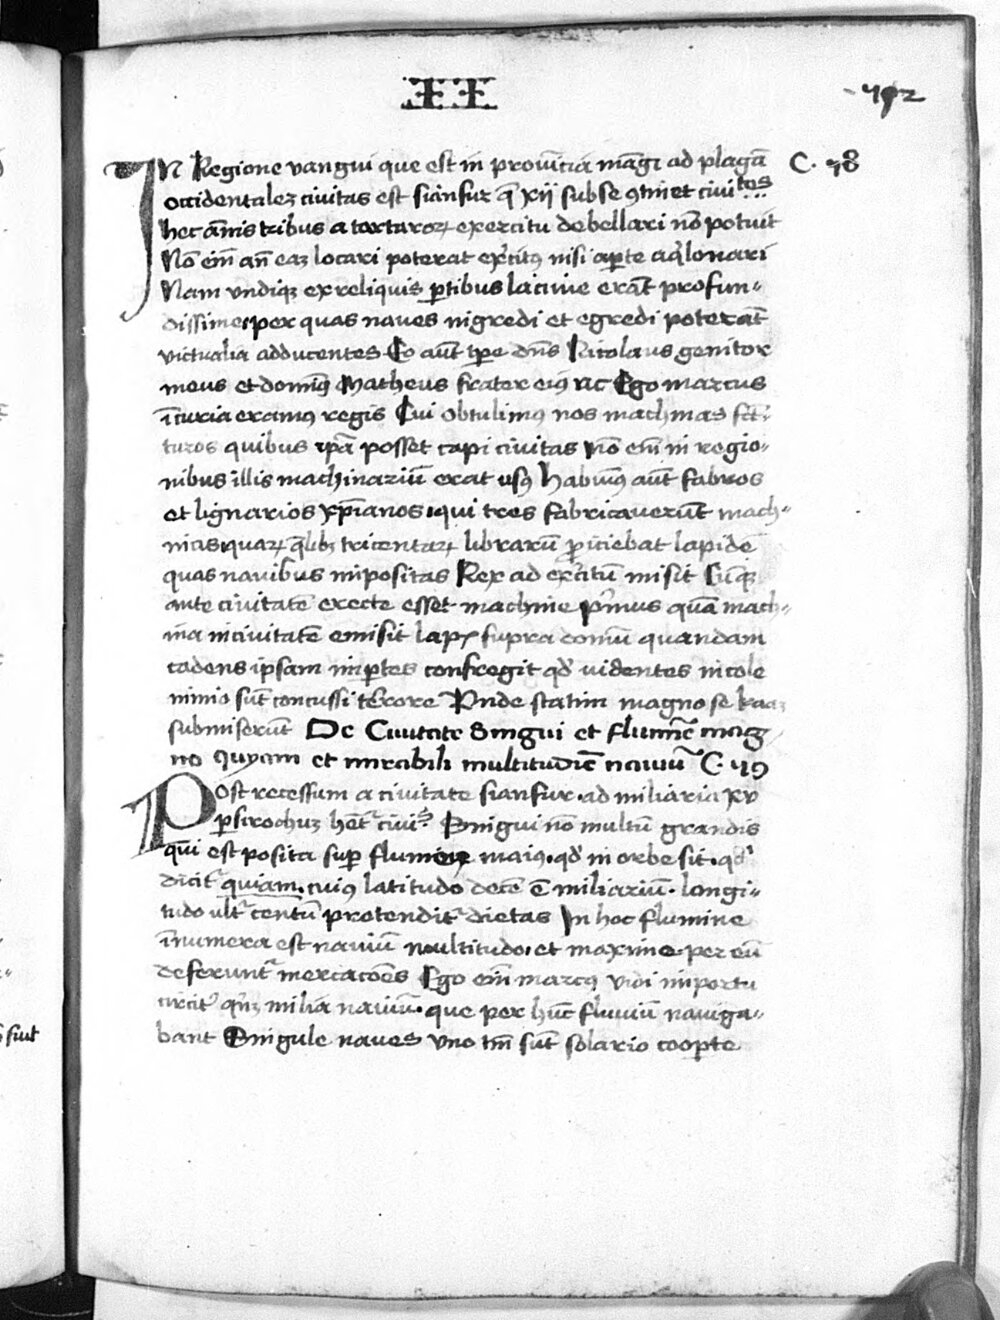 II
192
In Regione vangui que est in prouītia māgi ad plagā C. 78
occidentalez civitas est sianfur q̄ xij sub se 9tinet civitates
hec ānis tribus a tartarorꝝ exercitu debellari nō potuit
Nō em̄ an̄ eaz locari poterat exꝰcitꝰ nisi aꝑte aqlonari
Nam undiqꝫ ex reliquis ꝑtibus lacune erāt profun〃
dissime per quas naves ingredi et egredi poterāt
victualia adducentes Eo aūt tꝑe dn̄s Nicolaus genitor
meus et dominꝰ Matheus frater eiꝰ ac Ego marcus
ī curia eramꝰ regis Cui obtulimꝰ nos machinas fct̄〃
turos quibus ip̄a posset capi civitas nō em̄ in regio〃
nibus illis machinariū erat usꝰ Habuimꝰ aūt fabros
et lignarios xp̄ianos qui tres fabricaverūt mach〃
inas quarꝝ q̄libꝫ tricentarꝝ librarū ꝓiciebat lapidē
quas navibus impositas Rex ad exꝰcitū misit Cumqꝫ
ante civitatē erecte esset machine pͥmus quē mach〃
ina in civitatē emisit lapis supra domū quandam
cadens ipsam in ꝑtes confregit qd̄ videntes incole
nimio sūt concussi terrore Vnde statim magno se kaaꝫ
submiserūt De Ciuitate Singui et flumīe mag
no quyam et mirabili multitudīe nauiū C. 79
Post recessum a civitate sianfur ad miliaria xv
ꝑ sirochuz het̄ ciuis Singui nō multū grandis
qui est posita suꝑ flumen maiꝰ qd̄ in orbe sit qd̄
dicitʳ quiam cuiꝰ latitudo decē ē miliariū longi〃
tudo ultᵃ centū protenditʳ dietas In hoc flumine
īnumera est naviū multitudo et maxime per eū
deferuntʳ mercacōēs Ego em̄ marcꝰ vidi in portu
circitʳ qn̄qꝫ milia naviū que per hūc fluviū naviga〃
bant Singule naves uno tm̄ sūt solario cooꝑte